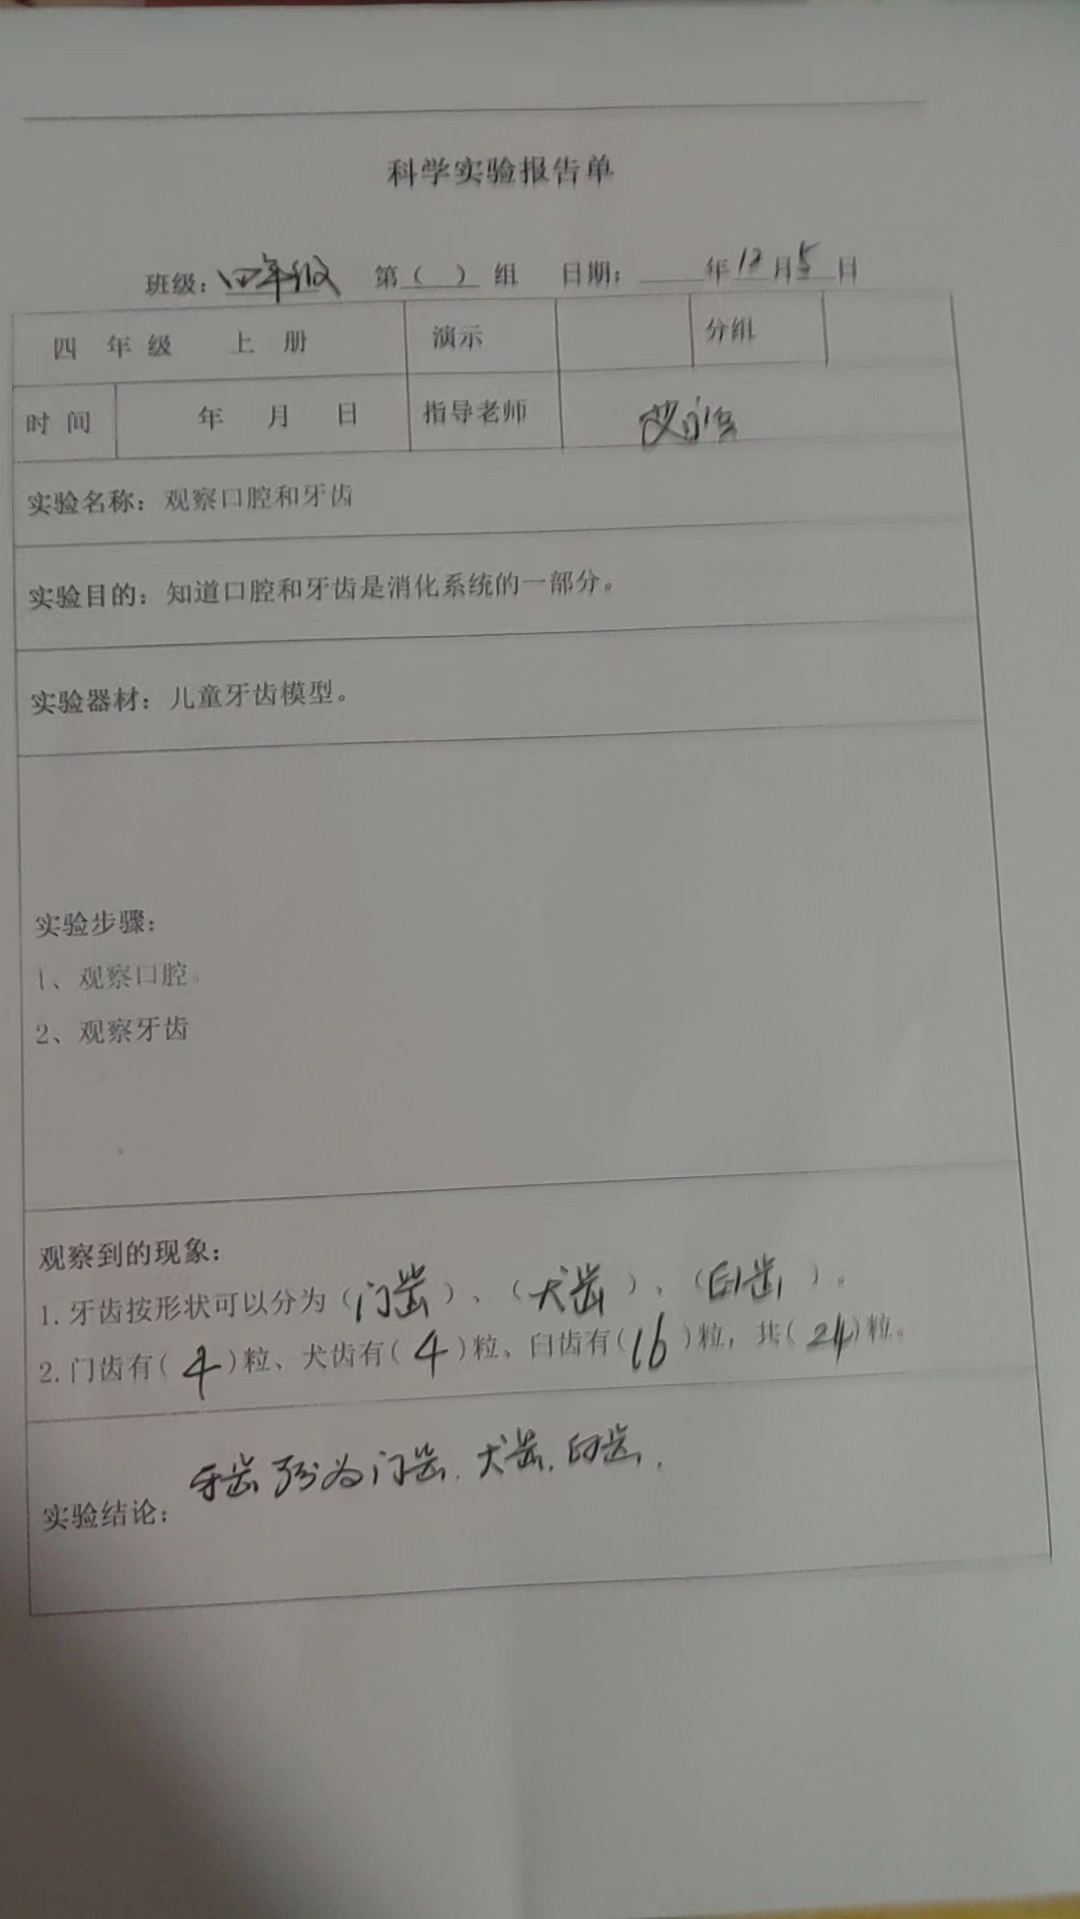 科学实验报告单
班级：四年级 第（ ）组 日期： 年12月5日
四 年 级 上 册 演示 分组
时 间 年 月 日 指导老师
实验名称：观察口腔和牙齿
实验目的：知道口腔和牙齿是消化系统的一部分。
实验器材：儿童牙齿模型。
实验步骤：
1、观察口腔。
2、观察牙齿
观察到的现象：
1.牙齿按形状可以分为（门齿）、（犬齿）、（臼齿）。
2.门齿有（4）粒、犬齿有（4）粒、臼齿有（16）粒，共（24）粒。
实验结论：牙齿 分为门齿.犬齿.臼齿.